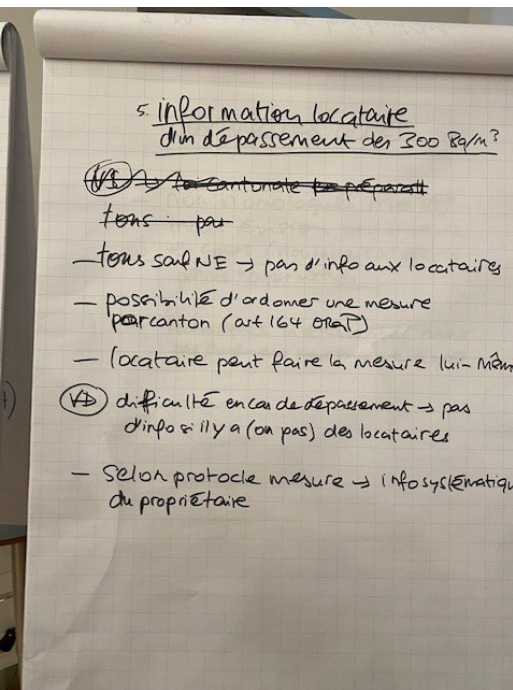 5. information locataire
d'un dépassement des 300 Bq/m³
VS → loi cantonale en prépara
tous : pas
– tous sauf NE → pas d'info aux locataires
– possibilité d'ordonner une mesure
par canton (art 164 ORaP)
– locataire peut faire la mesure lui-mêm
VD difficulté en cas de dépassement → pas
d'info si il y a (ou pas) des locataires
– selon protocle mesure → info systématiqu
du propriétaire
)